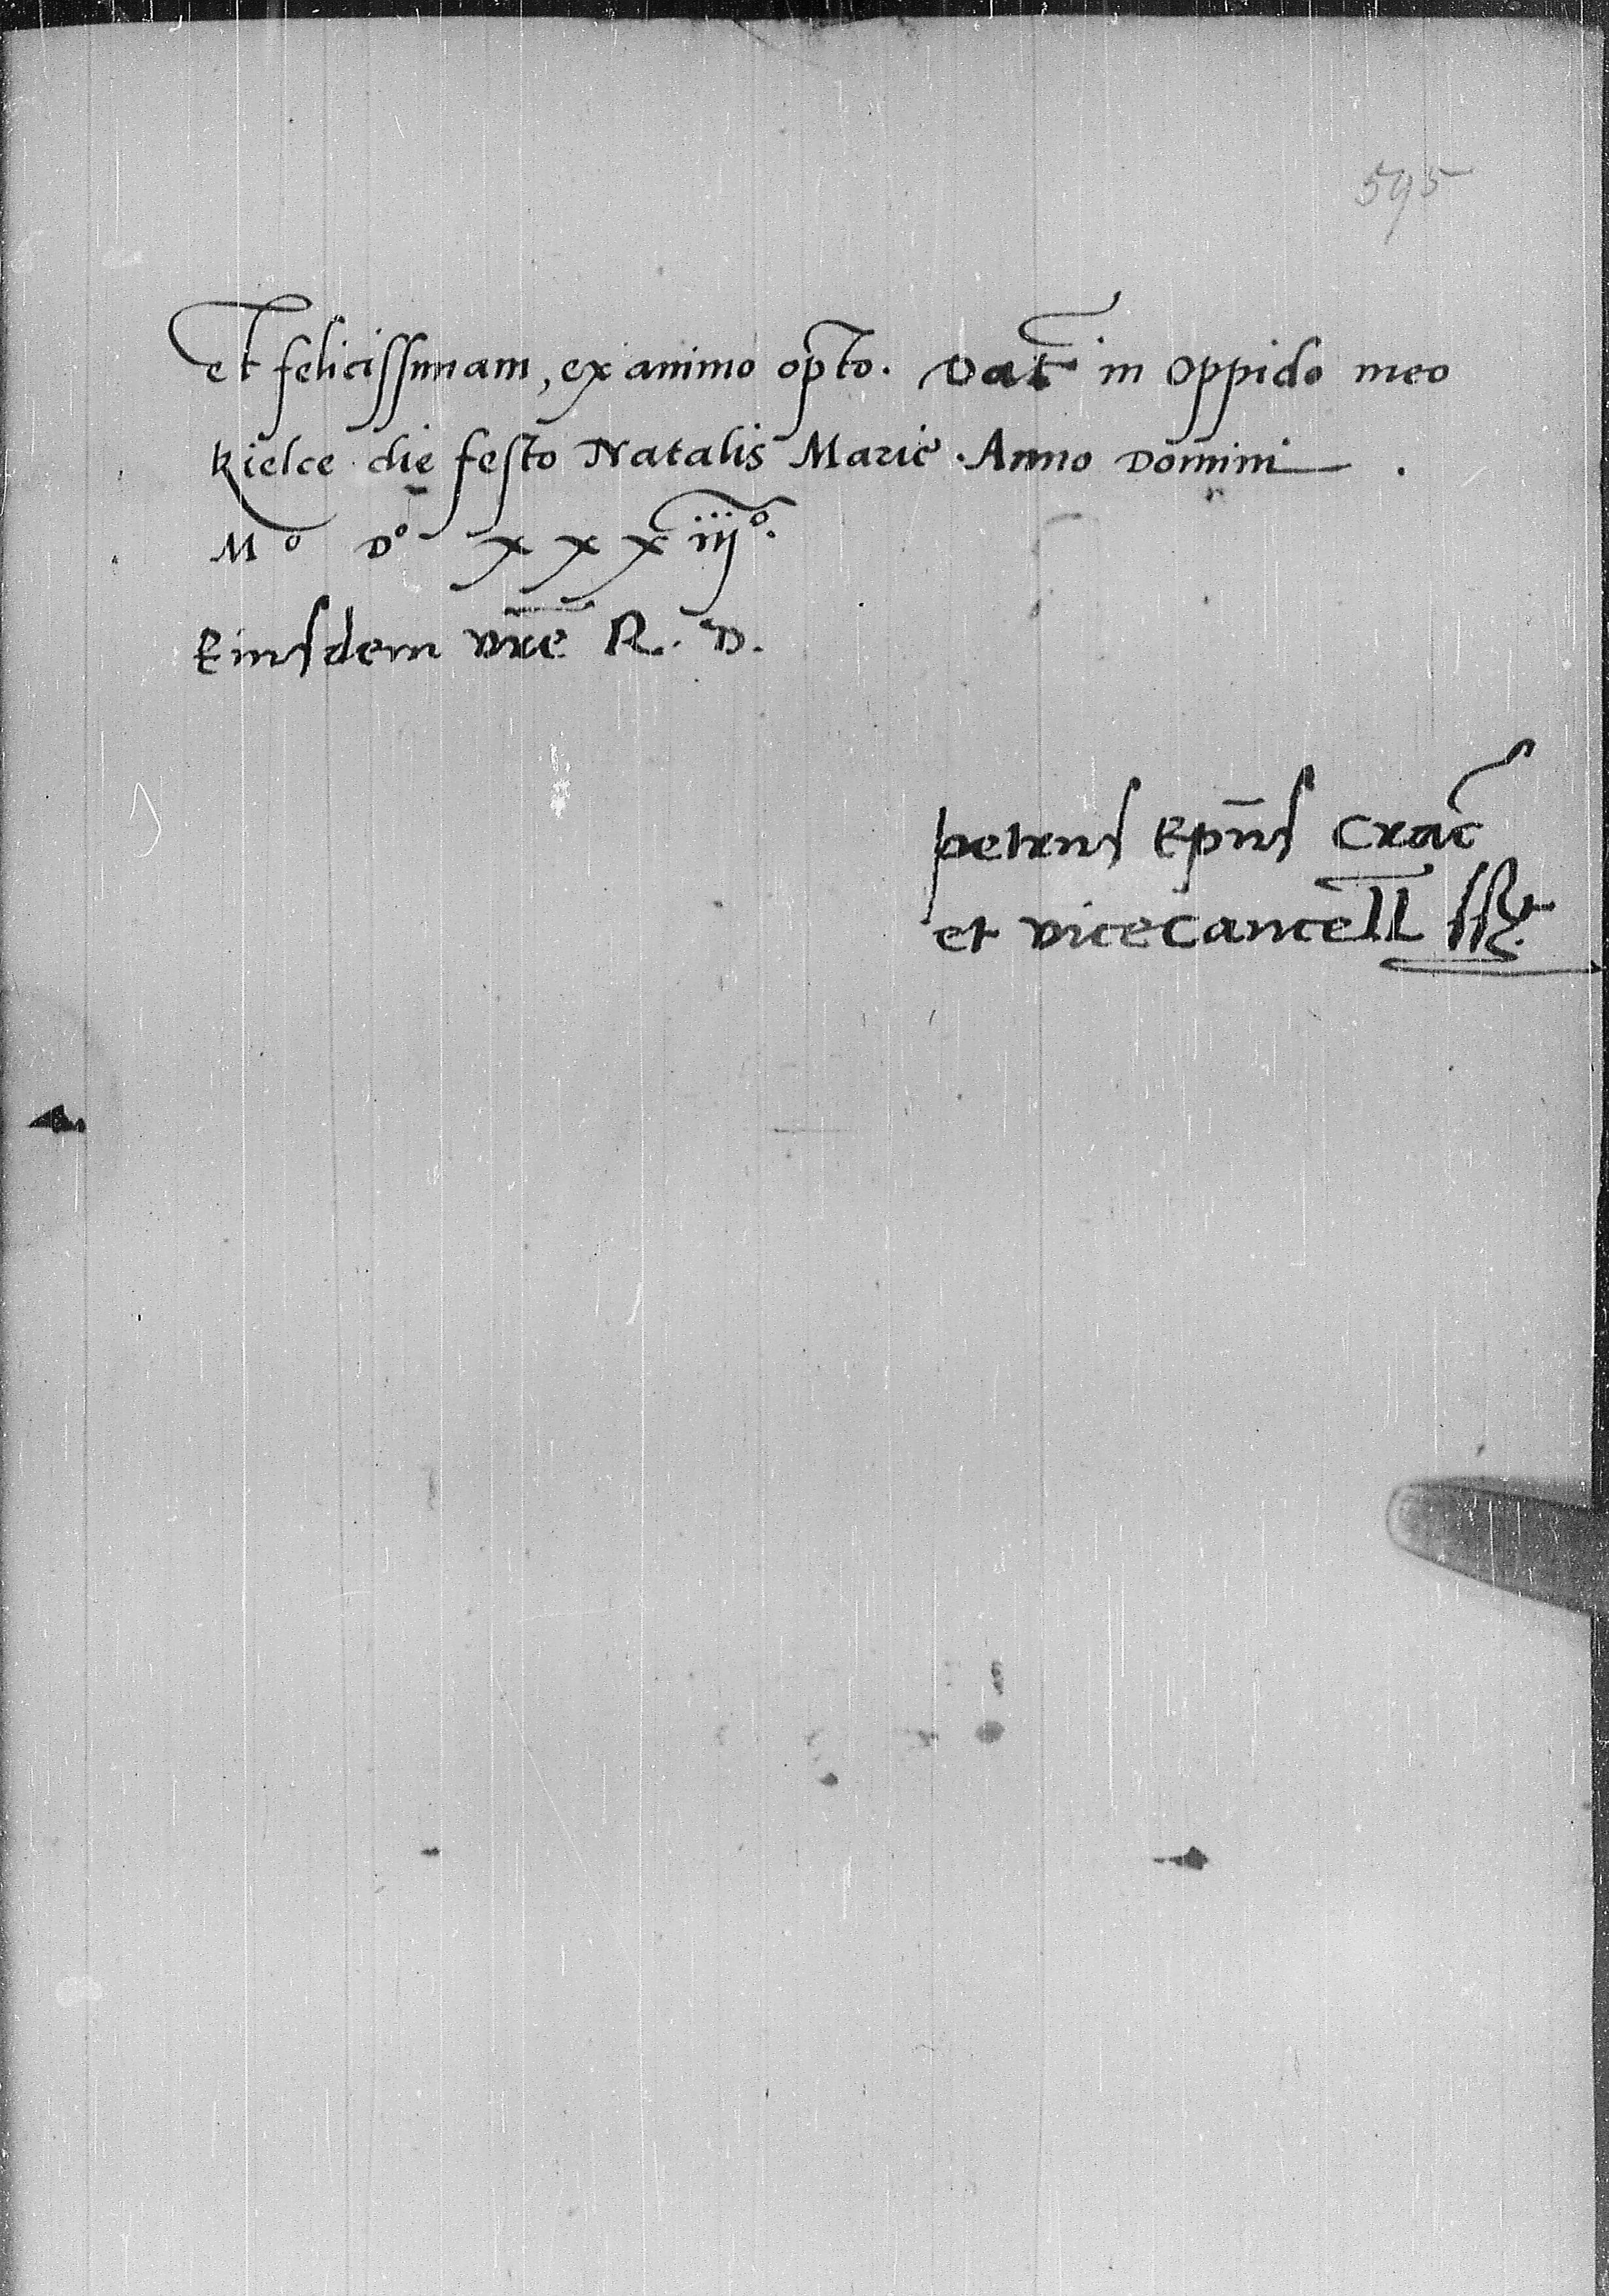 595
et felicissimam, ex animo opto. Dat in Oppido meo
Kielce die festo Natalis Marię. Anno Domini .
Mº Dº xxxiijº.
Eiusdem vrē R. D.
petrus Epūs Crac
et vicecancell sst